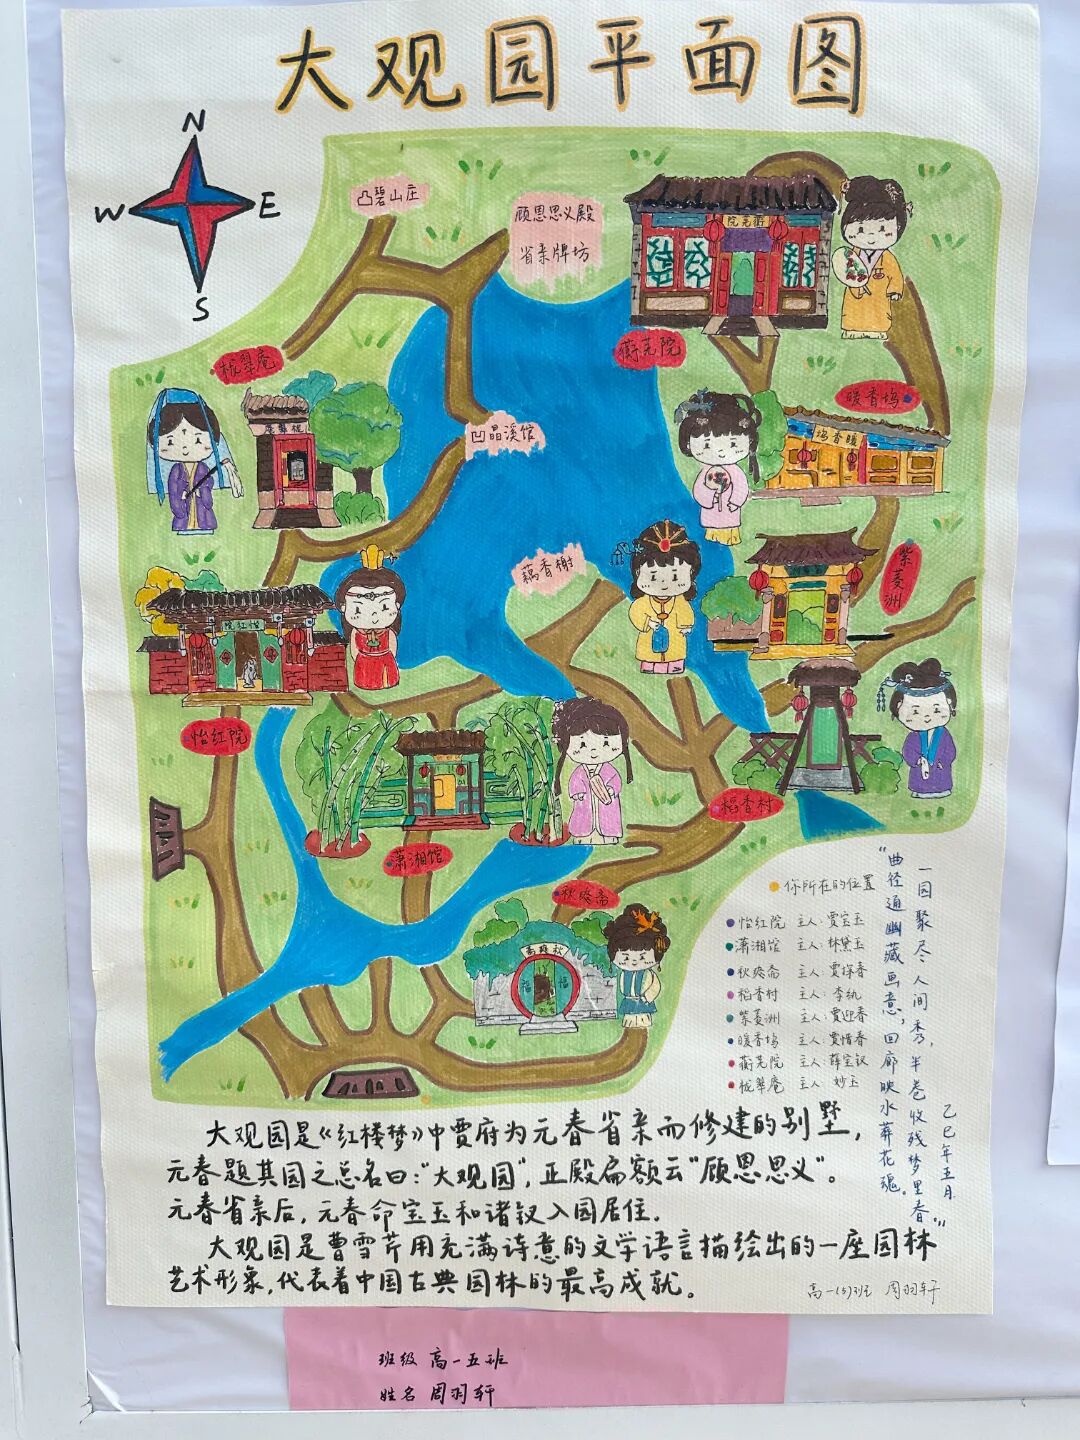 大观园平面图
N
W
E
S
凸碧山庄
顾恩思义殿
省亲牌坊
蘅芜院
蘅芜院
栊翠庵
栊翠庵
暖香坞
暖香坞
凹晶溪馆
藕香榭
紫菱洲
怡红院
怡红院
稻香村
潇湘馆
秋爽斋
秋爽斋
福
福
你所在的位置
怡红院 主人:贾宝玉
潇湘馆 主人:林黛玉
秋爽斋 主人:贾探春
稻香村 主人:李纨
紫菱洲 主人:贾迎春
暖香坞 主人:贾惜春
蘅芜院 主人:薛宝钗
栊翠庵 主人:妙玉
“曲径通幽藏画意,回廊映水葬花魂。
一园聚尽人间秀,半卷收残梦里春。”
乙巳年五月
大观园是《红楼梦》中贾府为元春省亲而修建的别墅,
元春题其园之总名曰:“大观园”,正殿匾额云“顾恩思义”。
元春省亲后,元春命宝玉和诸钗入园居住.
大观园是曹雪芹用充满诗意的文学语言描绘出的一座园林
艺术形象,代表着中国古典园林的最高成就。
高一(5)班 周羽轩
班级 高一五班
姓名 周羽轩